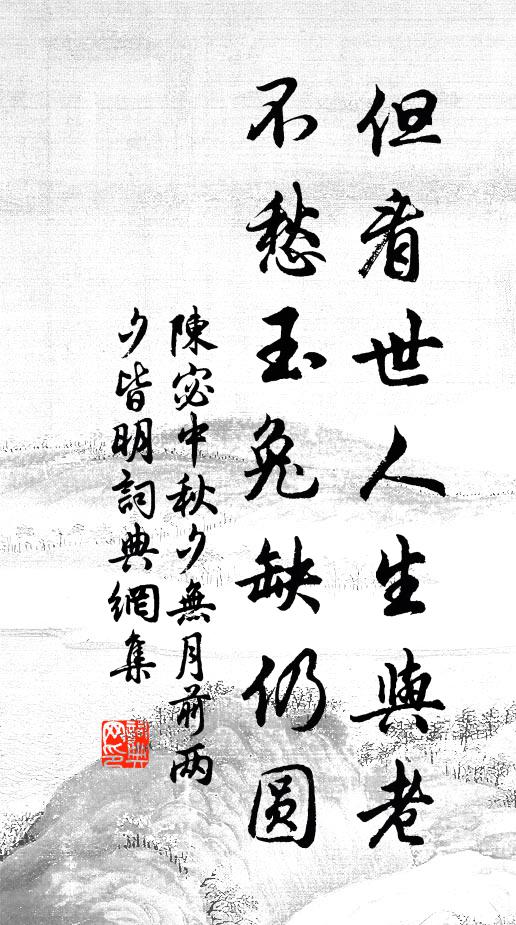 但看世人生與老
不愁玉兔缺仍圆
陳宓中秋夕無月前兩
夕皆明詞典網集